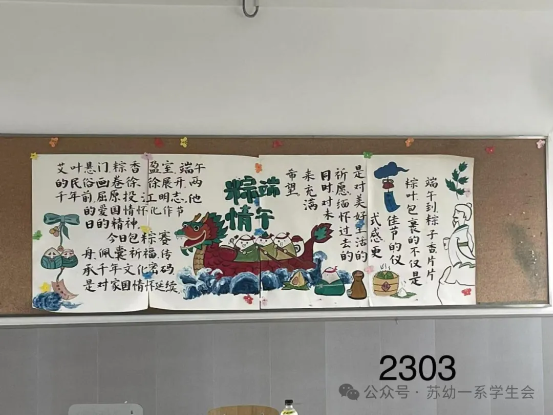 艾叶悬门,粽香盈室,端午
的民俗画卷徐徐展开,两
千年前,屈原投江明志,他
的爱国情怀化作节
日的精神。
今日包粽赛
舟,佩囊祈福,传
承千年文化密码
是对家国情怀延续
粽端
情午
端午到粽子香片片
粽叶包裹的不仅是
佳节的仪
式感更
是对美好生活的
祈愿缅怀过去的
日时对未
来充满
希望
2303
公众号·苏幼一系学生会